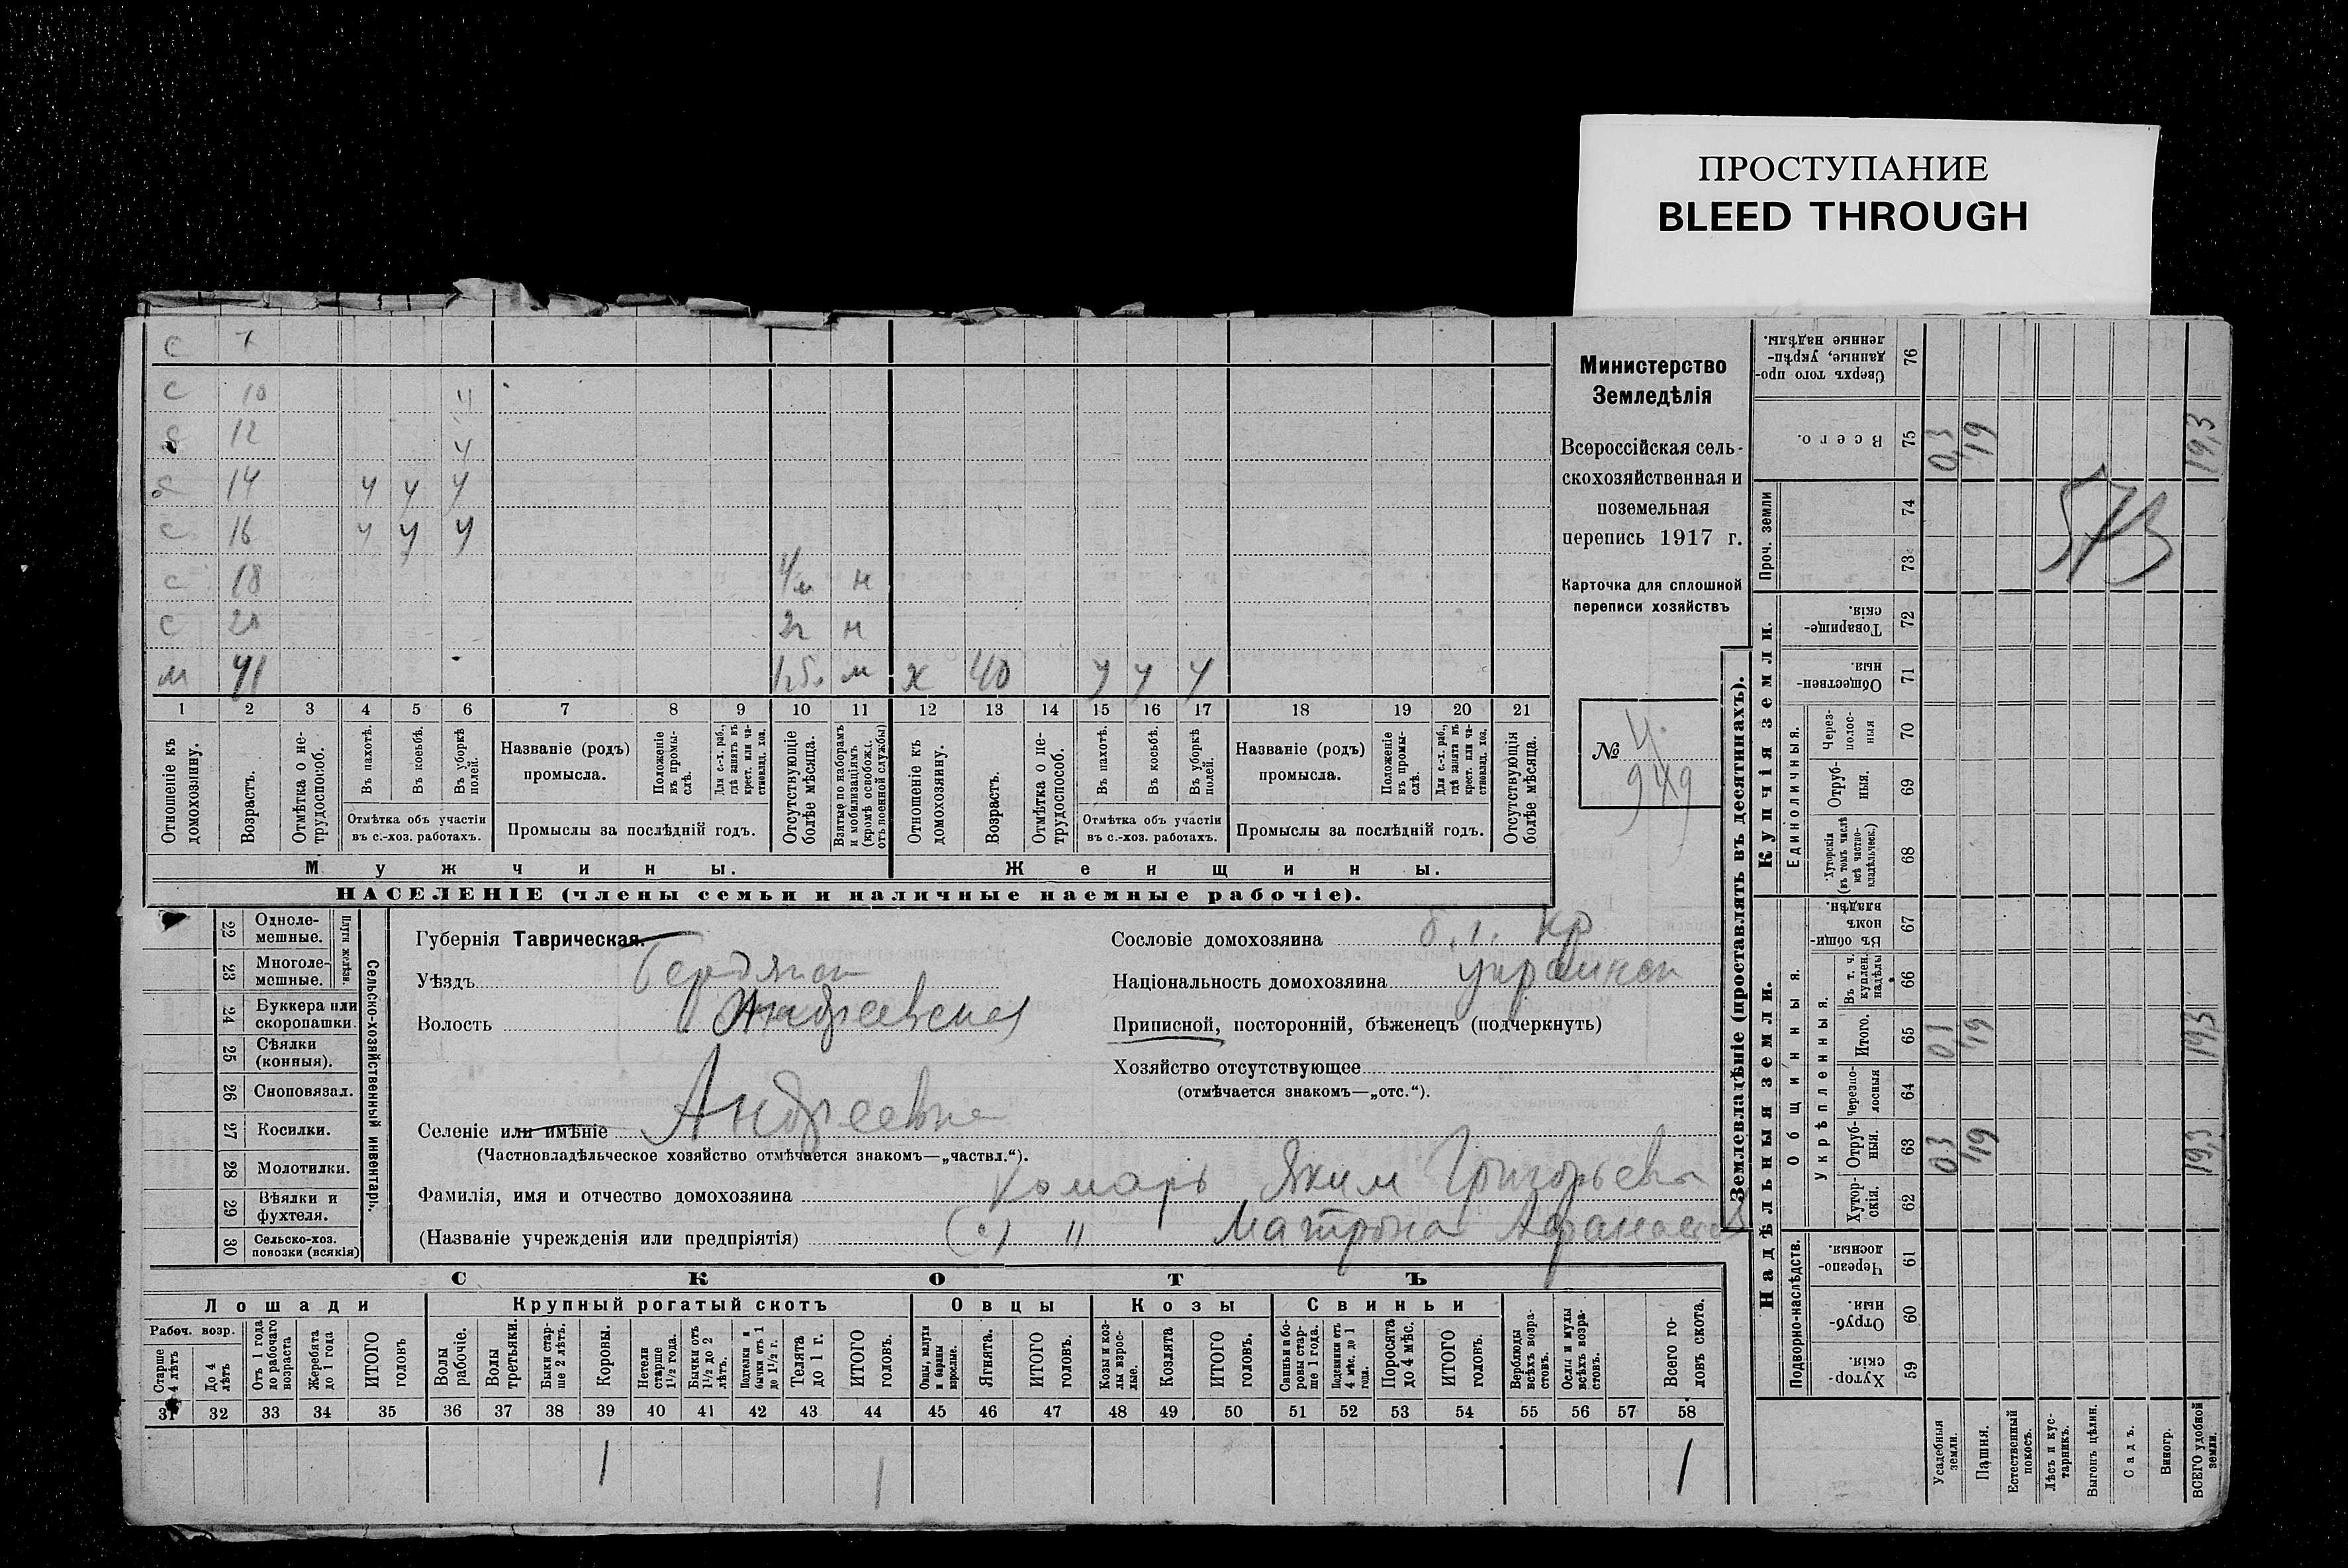 ПРОСТУПАНИЕ
BLEED THROUGH
с 7
с 10 у
с 12 у
с 14 у у у
с 16 у у у
с 18 н
с 20 2г н
м 41 м ж 40 у у у
1 2 3 4 5 6 7 8 9 10 11 12 13 14 15 16 17 18 19 20 21
Отношеніе къ домохозяину.
Возрастъ.
Отмѣтка о нетрудоспособ.
Въ пахотѣ.
Въ косьбѣ.
Въ уборкѣ полей.
Отмѣтка объ участіи въ с.-хоз. работахъ.
Названіе (родъ) промысла.
Положеніе въ промыслѣ.
Для с.-х. раб., гдѣ занятъ въ крест. или частновлад. хоз.
Промыслы за послѣдній годъ.
Отсутствующіе болѣе мѣсяца.
Взятые по наборамъ и мобилизаціямъ (кромѣ освобожд. отъ военной службы)
Отношеніе къ домохозяину.
Возрастъ.
Отмѣтка о нетрудоспособ.
Въ пахотѣ.
Въ косьбѣ.
Въ уборкѣ полей.
Отмѣтка объ участіи въ с.-хоз. работахъ.
Названіе (родъ) промысла.
Положеніе въ промыслѣ.
Для с.-х. раб., гдѣ занята въ крест. или частновлад. хоз.
Промыслы за послѣдній годъ.
Отсутствующія болѣе мѣсяца.
Мужчины.
Женщины.
НАСЕЛЕНІЕ (члены семьи и наличные наемные рабочіе).
Министерство
Земледѣлія
Всероссійская сель-
скохозяйственная и
поземельная
перепись 1917 г.
Карточка для сплошной
переписи хозяйствъ
№ 4.
949
22 Однолемешные.
23 Многолемешные.
Плуги желѣзн.
24 Буккера или скоропашки.
25 Сѣялки (конныя).
26 Сноповязал.
27 Косилки.
28 Молотилки.
29 Вѣялки и фухтеля.
30 Сельско-хоз. повозки (всякія)
Сельско-хозяйственный инвентарь.
Губернія Таврическая.
Уѣздъ Бердянск
Волость Андреевская
Селеніе или имѣніе Андреевка
(Частновладѣльческое хозяйство отмѣчается знакомъ—„частвл.“).
Фамилія, имя и отчество домохозяина Комарь Яким Григорьев
(Названіе учрежденія или предпріятія) (с) " Матрона Афанасьев
Сословіе домохозяина кр
Національность домохозяина украинск
Приписной, посторонній, бѣженецъ (подчеркнуть)
Хозяйство отсутствующее
(отмѣчается знакомъ—„отс.“).
СКОТЪ
Лошади
Крупный рогатый скотъ
Овцы
Козы
Свиньи
Рабоч. возр.
Старше 4 лѣтъ
До 4 лѣтъ
Отъ 1 года до рабочаго возраста
Жеребята до 1 года
ИТОГО головъ
Волы рабочіе.
Волы третьяки.
Быки старше 2 лѣтъ.
Коровы.
Нетели старше 1½ года.
Бычки отъ 1½ до 2 лѣтъ.
Подтелки и бычки отъ 1 до 1½ г.
Телята до 1 г.
ИТОГО головъ.
Овцы, валухи и бараны взрослые.
Ягнята.
ИТОГО головъ.
Козы и козлы взрослые.
Козлята
ИТОГО головъ.
Свиньи и боровы старше 1 года.
Подсвинки отъ 4 мѣс. до 1 года.
Поросята до 4 мѣс.
ИТОГО головъ.
Верблюды всѣхъ возрастовъ.
Ослы и мулы всѣхъ возрастовъ.
Всего головъ скота.
31 32 33 34 35 36 37 38 39 40 41 42 43 44 45 46 47 48 49 50 51 52 53 54 55 56 57 58
1 1 1
Землевладѣніе (проставлять въ десятинахъ).
Надѣльныя земли.
Купчія земли.
Проч. земли
Подворно-наслѣдств.
Общинныя.
Укрѣпленныя.
Единоличныя.
Сверхъ того проданные, укрѣпленные надѣлы. 76
Всего. 75 0,3 19 19,3
74
73
573
Товарищескія. 72
Общественныя. 71
Черезполосныя 70
Отрубныя. 69
Хуторскія (въ томъ числѣ всѣ частновладѣльческ.) 68
Въ общинномъ владѣн. 67
Въ т. ч. куплен. надѣлы 66
Итого. 65 19 19,3
Черезполосныя 64
Отрубныя. 63 0,3 19 19,3
Хуторскія. 62
Черезполосныя. 61
Отрубныя. 60
Хуторскія 59
Усадебныя земли.
Пашня.
Естественный покосъ.
Лѣсъ и кустарникъ.
Выгонъ цѣлин.
Садъ.
Виногр.
ВСЕГО удобной земли.